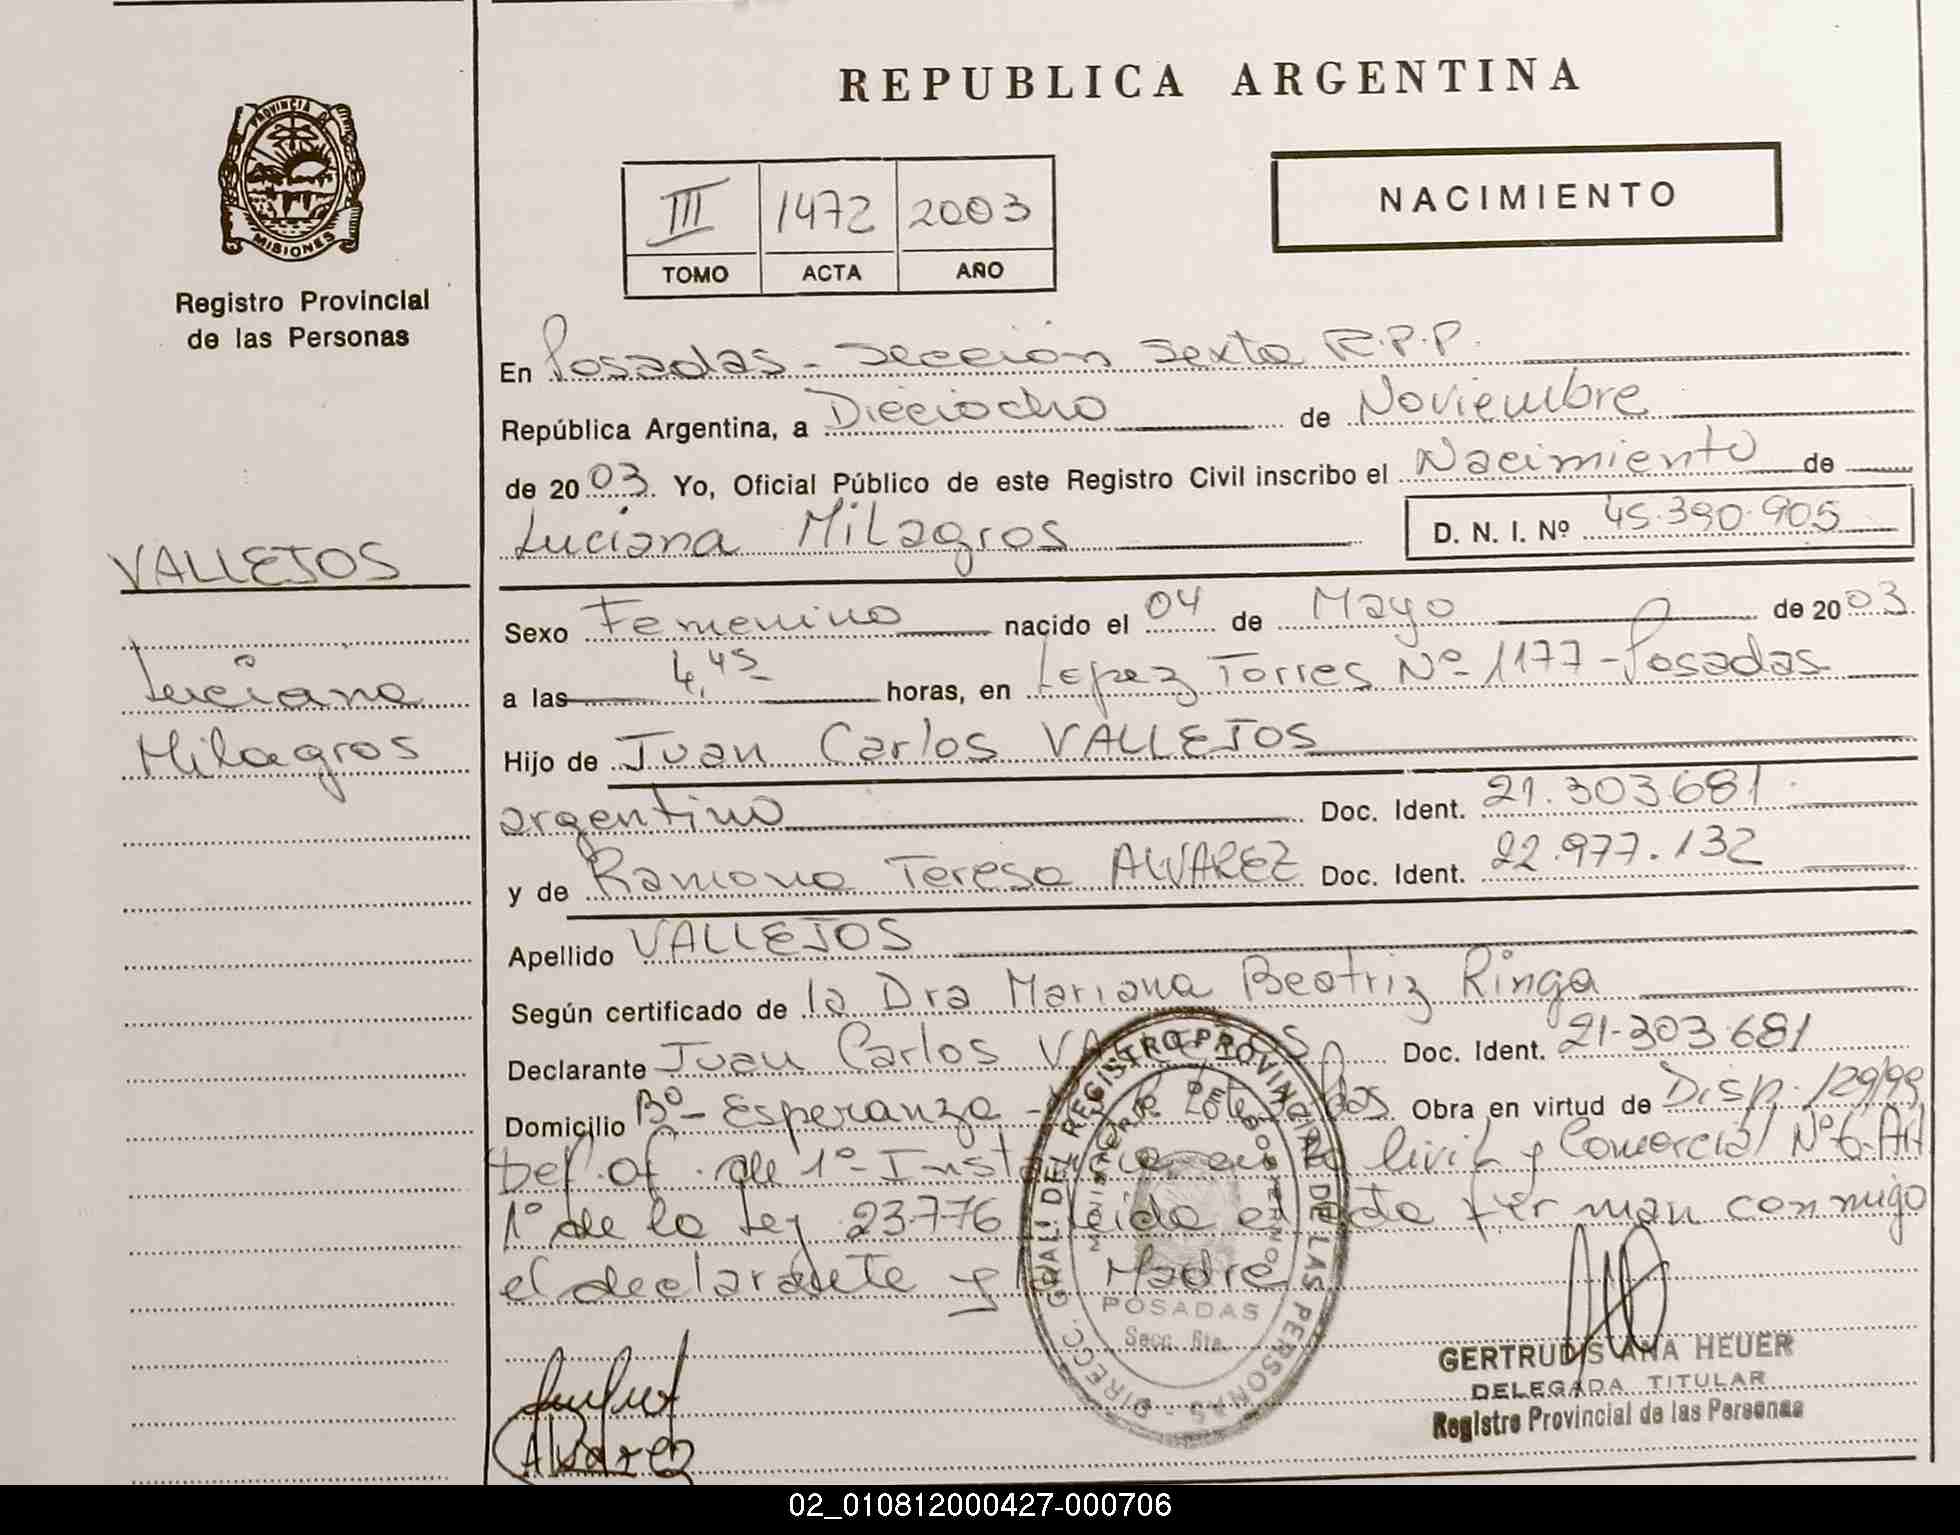 REPUBLICA ARGENTINA
PROVINCIA DE
MISIONES
Registro Provincial
de las Personas
III 1472 2003
TOMO ACTA AÑO
NACIMIENTO
En Posadas - Sección Sexta R.P.P.
República Argentina, a Dieciocho de Noviembre
de 2003. Yo, Oficial Público de este Registro Civil inscribo el Nacimiento de
Luciana Milagros D. N. I. Nº 45.390.905
VALLEJOS
Luciana
Milagros
Sexo Femenino nacido el 04 de Mayo de 2003.
a las 4,45 horas, en Lopez Torres Nº 1177 - Posadas
Hijo de Juan Carlos VALLEJOS
argentino Doc. Ident. 21.303.681
y de Ramona Teresa ALVAREZ Doc. Ident. 22.977.132
Apellido VALLEJOS
Según certificado de la Dra Mariana Beatriz Ringa
Declarante Juan Carlos VALLEJOS Doc. Ident. 21.303.681
Domicilio Bº- Esperanza - Obra en virtud de Disp. 129/99
Def. of. de 1º- Instancia en lo Civil y Comercial Nº6-Art
1º de la Ley 23.776 Leida el acta firman conmigo
el declarante y la Madre
DIRECC. GRAL. DEL REGISTRO PROVINCIAL DE LAS PERSONAS
MINISTERIO DE GOBIERNO
POSADAS
Secc. 6ta.
Alvarez
GERTRUDIS ANA HEUER
DELEGADA TITULAR
Registro Provincial de las Personas
02_010812000427-000706